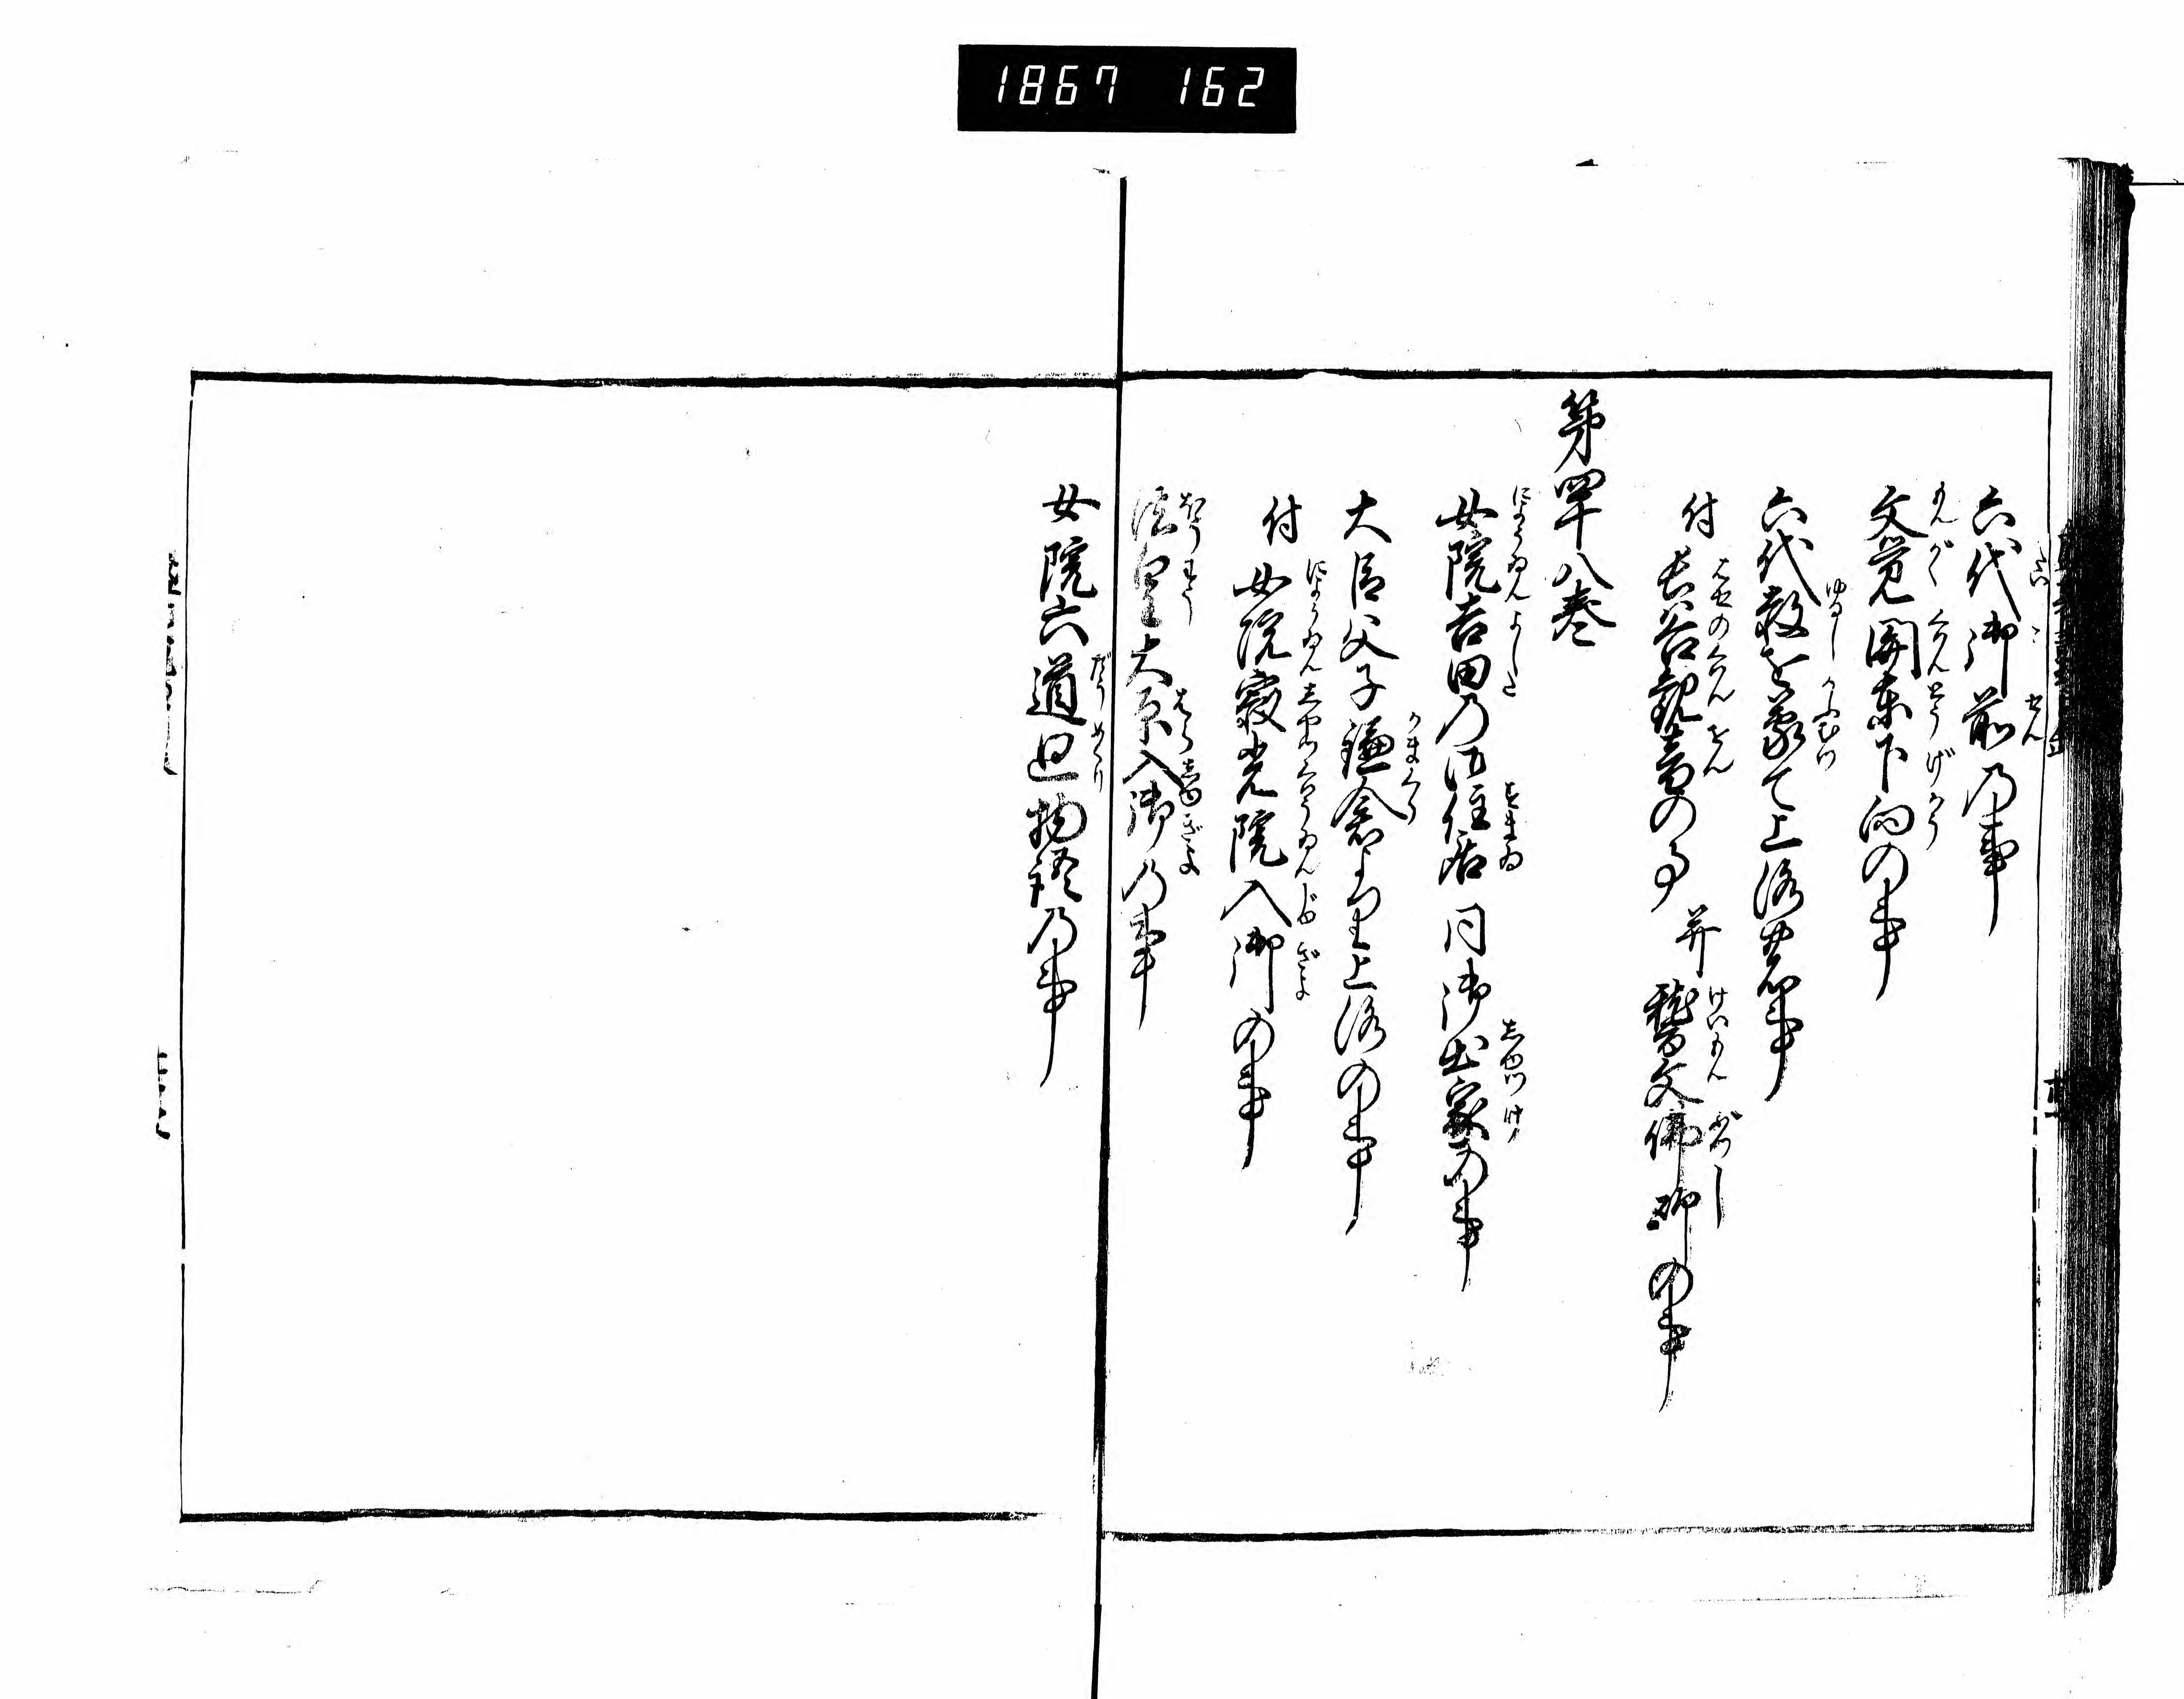 1867 162
六代御前乃事
文覚関東下向の事
六代赦を蒙て上洛の事
付長谷観音の事 并 稽文佛師の事
第四十八巻
女院吉田乃御住居 同御出家の事
大臣父子鎌倉より上洛の事
付女院寂光院入御の事
法皇大原入御乃事
女院六道廻物語乃事